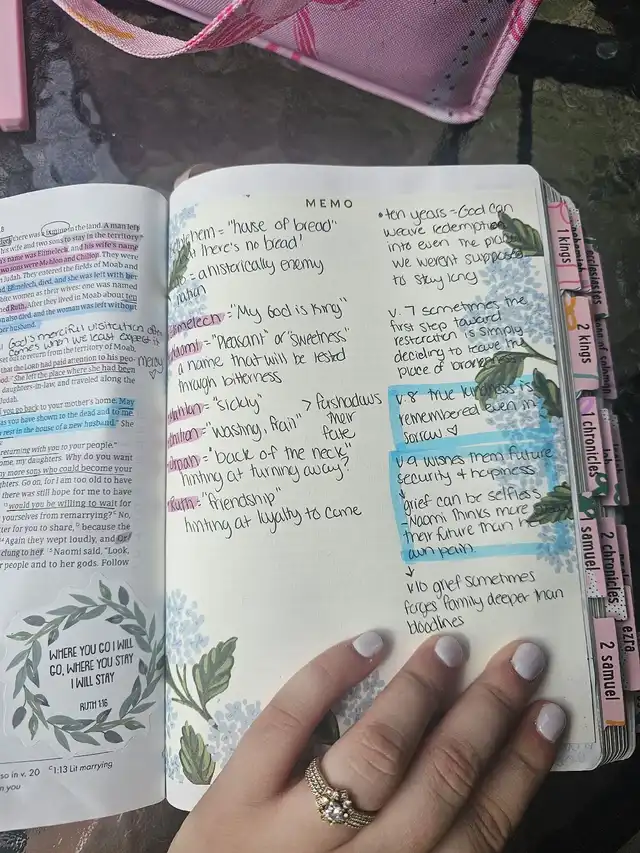 there was a famine in the land. A man left
his wife and two sons to stay in the territory
name was Elimelech, and his wife's name
two sons were Mahlon and Chilion. They were
Judah. They entered the fields of Moab and
Elimelech, died, and she was left with her
women as their wives: one was named
Ruth. After they lived in Moab about ten
also died, and the woman was left without
her husband.
God's merciful visitation often
comes when we least expect it
set out to return from the territory of Moab,
that the LORD had paid attention to his
She left the place where she had been
daughters-in-law, and traveled along the
Judah.
go back to your mother's home. May
as you have shown to the dead and to me
rest in the house of a new husband." She
returning with you to your people."
home, my daughters. Why do you want
any more sons who could become your
daughters. Go on, for I am too old to have
there was still hope for me to have
would you be willing to wait for
yourselves from remarrying? No,
for you to share, because the
Again they wept loudly, and
clung to her. Naomi said, "Look,
people and to her gods. Follow
WHERE YOU GO I WILL
GO, WHERE YOU STAY
I WILL STAY
RUTH 1:16
so in v. 20 1:13 Lit marrying
you
MEMO
hem = "house of bread"
there's no bread!
= a historically enemy
nation
Elimelech = "My God is King"
Naomi = "Pleasant" or "Sweetness"
a name that will be tested
through bitterness
= "sickly"
> forshadows
their
fate
= "wasting, frail"
= "back of the neck"
hinting at turning away?
Ruth = "friendship"
hinting at loyalty to come
• ten years = God can
weave redemption
into even the
we werent supposed
to stay long
v. 7 sometimes the
first step toward
restoration is simply
deciding to leave the
place of
v.8 true kindness is
remembered even in
sorrow
v.9 wishes them future
security & happiness
grief can be selfless
- Naomi thinks more
their future than
own pain.
v10 grief sometimes
forges family deeper than
bloodlines
1 kings
2 kings
1 chronicles
1 samuel
2 chronicles
2 samuel
ezra
nehemiah
ecclesiastes
song of solomon